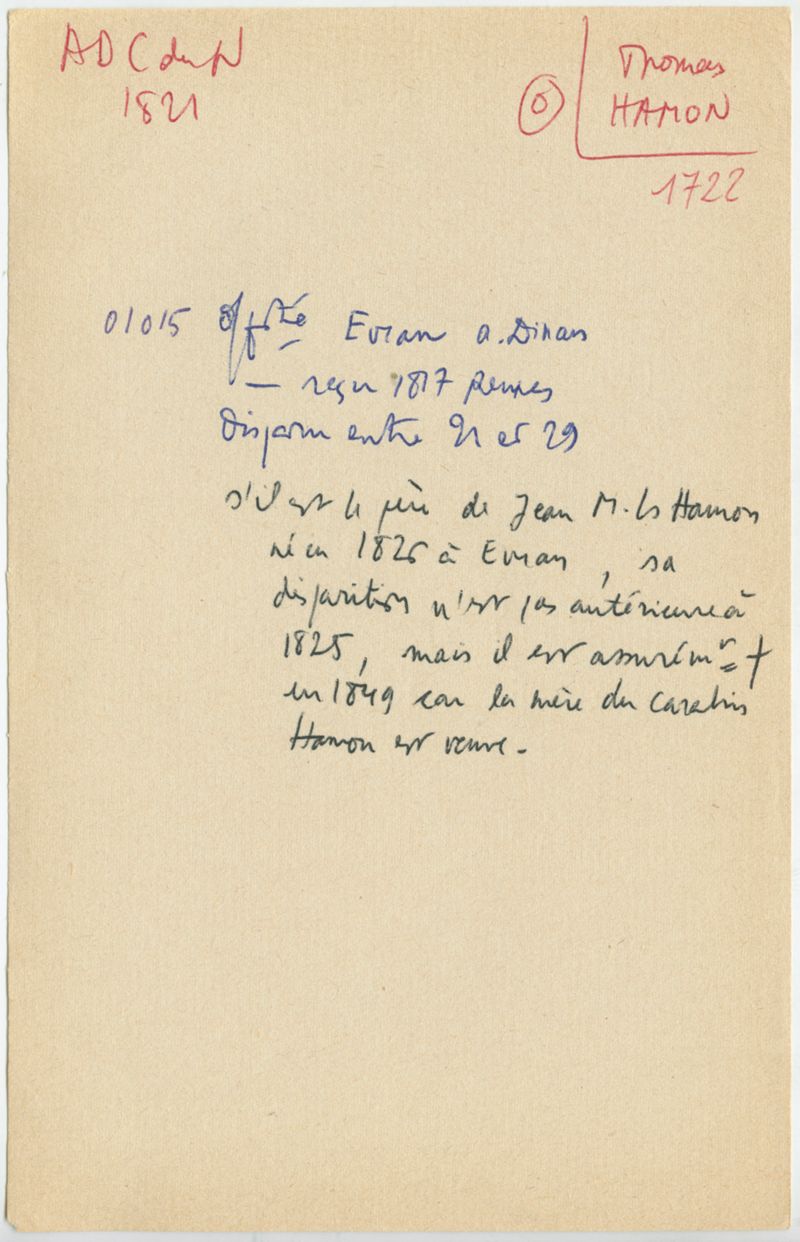 ADCduN
1821
Thomas
HAMON
1722
01015 Evran a. Dinan
— reçu 1817 Rennes
Disparu entre 21 et 29
s'il est le père de Jean M. Ls Hamon
né en 1826 à Evran, sa
disparition n'est pas antérieure à
1825, mais il est assurémt †
en 1849 car la mère du carabin
Hamon est veuve.